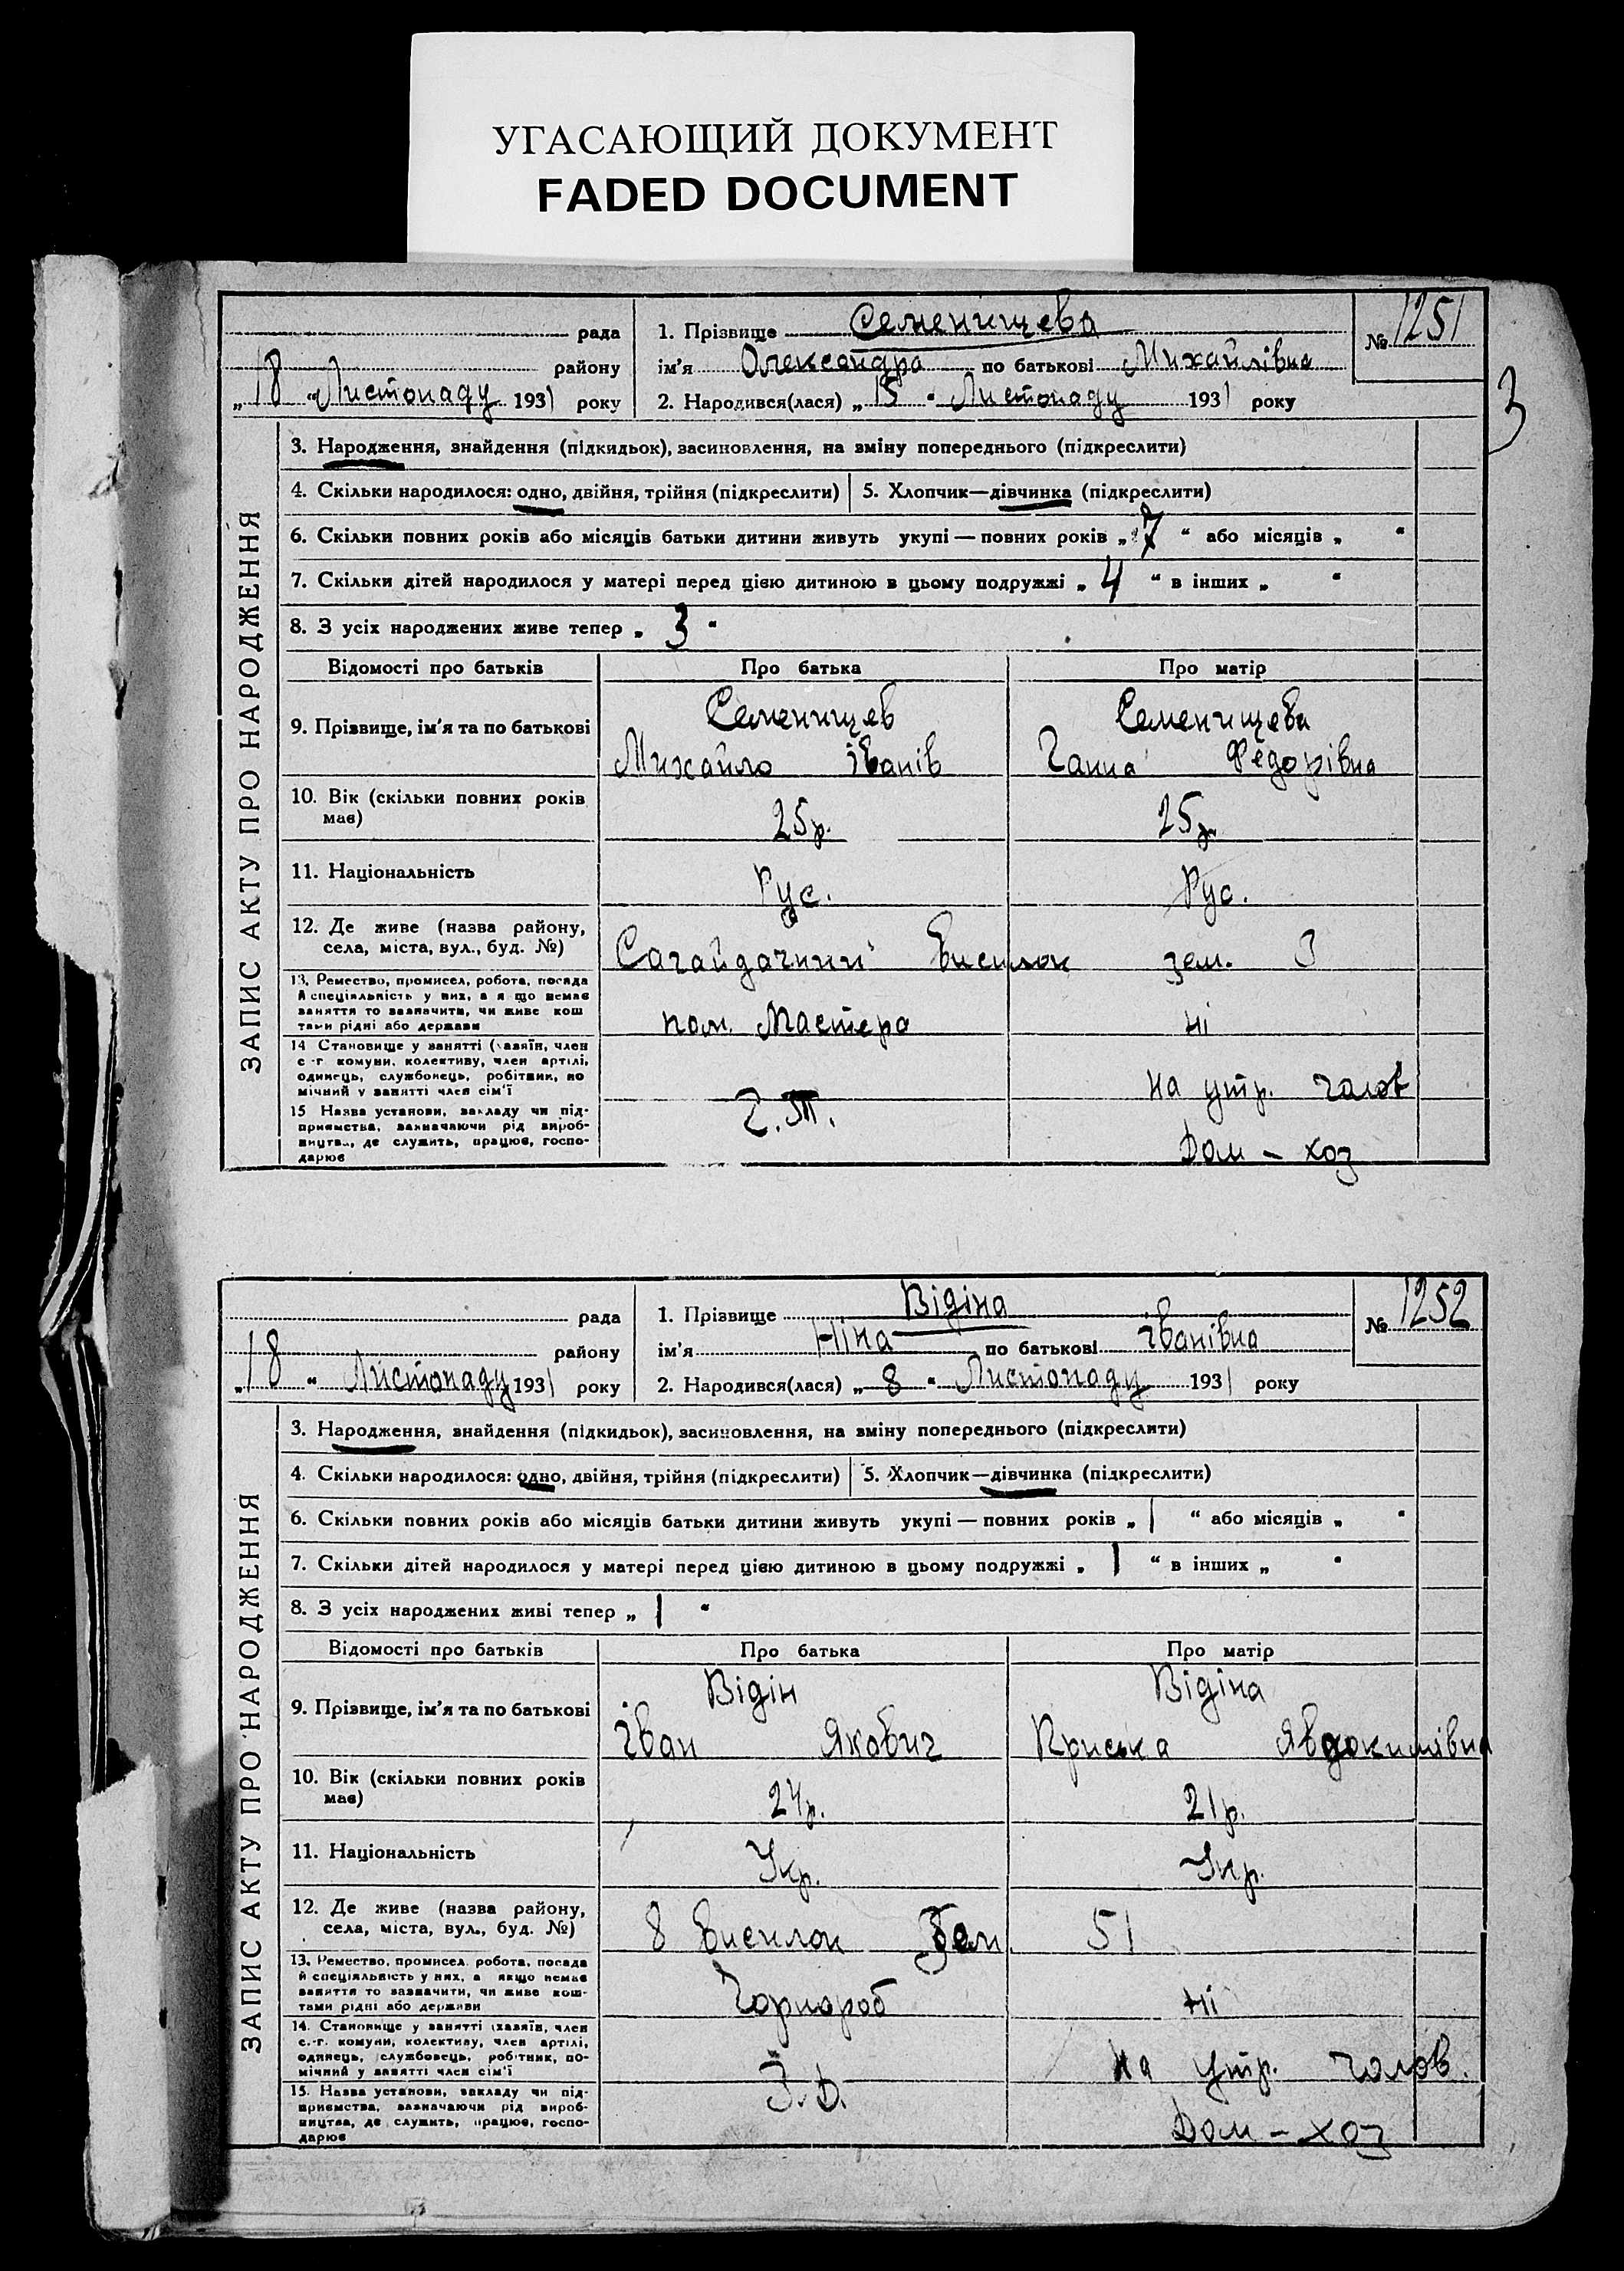 УГАСАЮЩИЙ ДОКУМЕНТ
FADED DOCUMENT
3
рада
району
„18“ Листопаду 1931 року
1. Прізвище Семенищева
ім'я Олександра по батькові Михайлівна
2. Народився(лася) „15“ Листопаду 1931 року
№ 1251
ЗАПИС АКТУ ПРО НАРОДЖЕННЯ
3. Народження, знайдення (підкидьок), засиновлення, на зміну попереднього (підкреслити)
4. Скільки народилося: одно, двійня, трійня (підкреслити) 5. Хлопчик—дівчинка (підкреслити)
6. Скільки повних років або місяців батьки дитини живуть укупі — повних років „7“ або місяців „ “
7. Скільки дітей народилося у матері перед цією дитиною в цьому подружжі „4“ в інших „ “
8. З усіх народжених живе тепер „3“
Відомості про батьків Про батька Про матір
9. Прізвище, ім'я та по батькові
Семенищев Семенищева
Михайло Іванів Ганна Федорівна
10. Вік (скільки повних років має)
25р. 25р.
11. Національність
Рус. Рус.
12. Де живе (назва району,
села, міста, вул., буд. №)
Сагайдачний висилок зем. 3
13. Ремество, промисел, робота, посада
й спеціяльність у них, а я що немає
заняття то зазначити, чи живе кош
тами рідні або держави
пом. Мастера ні
14 Становище у занятті (хазяїн, член
с -г комуни, колективу, член артілі,
одинець, службовець, робітник, по
мічний у занятті член сім'ї
на утр. чолов
15 Назва установи, закладу чи під-
приємства, зазначаючи рід вироб-
ництва, де служить, працює, госпо-
дарює
Дом – хоз
рада
району
„18“ Листопаду 1931 року
1. Прізвище Відіна
ім'я Ніна по батькові Іванівна
2. Народився(лася) „8“ Листопаду 1931 року
№ 1252
ЗАПИС АКТУ ПРО НАРОДЖЕННЯ
3. Народження, знайдення (підкидьок), засиновлення, на зміну попереднього (підкреслити)
4. Скільки народилося: одно, двійня, трійня (підкреслити) 5. Хлопчик—дівчинка (підкреслити)
6. Скільки повних років або місяців батьки дитини живуть укупі — повних років „1“ або місяців „ “
7. Скільки дітей народилося у матері перед цією дитиною в цьому подружжі „1“ в інших „ “
8. З усіх народжених живі тепер „1“
Відомості про батьків Про батька Про матір
9. Прізвище, ім'я та по батькові
Відін Відіна
Іван Якович Приська Явдокимівна
10. Вік (скільки повних років має)
24р. 21р.
11. Національність
Укр. Укр.
12. Де живе (назва району,
села, міста, вул., буд. №)
8 висилок Зем 51
13. Ремество, промисел, робота, посада
й спеціяльність у них, а якщо немає
заняття то зазначити, чи живе кош-
тами рідні або держави
Чорнороб ні
14. Становище у занятті (хазяїн, член
с.-г. комуни, колективу, член артілі,
одинець, службовець, робітник, по-
мічний у занятті член сім'ї
на утр. чолов.
15. Назва установи, закладу чи під-
приємства, зазначаючи рід вироб-
ництва, де служить, працює, госпо-
дарює
Дом – хоз